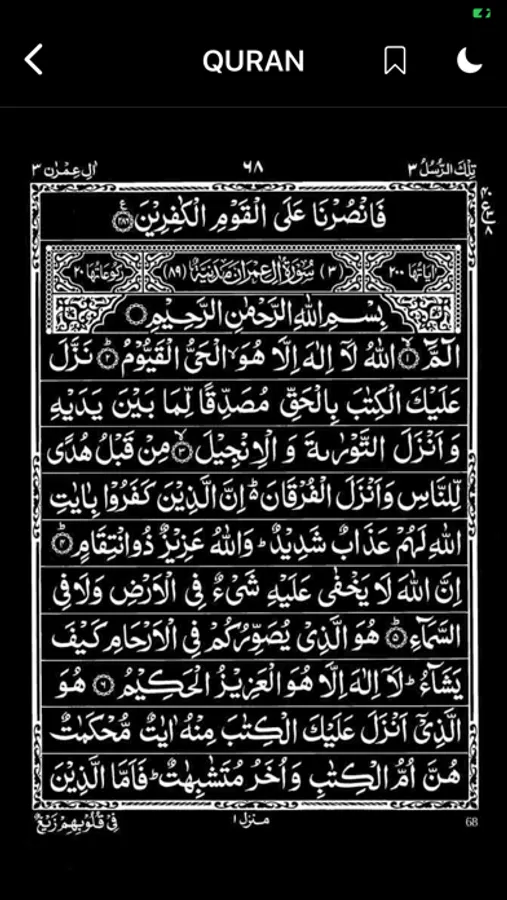 QURAN
تِلْكَ الرُّسُلُ ٣
٦٨
اٰلِ عِمْرٰن ٣
فَانْصُرْنَا عَلَى الْقَوْمِ الْكٰفِرِيْنَ ﴿٢٨٦﴾ ع
اٰيَاتُهَا ٢٠٠ (٣) سُوْرَةُ اٰلِ عِمْرَانَ مَدَنِيَّةٌ (٨٩) رُكُوْعَاتُهَا ٢٠
بِسْمِ اللّٰهِ الرَّحْمٰنِ الرَّحِيْمِ
الٓمّٓ ﴿١﴾ اللّٰهُ لَاۤ اِلٰهَ اِلَّا هُوَ الْحَيُّ الْقَيُّوْمُ ﴿٢﴾ نَزَّلَ
عَلَيْكَ الْكِتٰبَ بِالْحَقِّ مُصَدِّقًا لِّمَا بَيْنَ يَدَيْهِ
وَ اَنْزَلَ التَّوْرٰىةَ وَ الْاِنْجِيْلَ ﴿٣﴾ مِنْ قَبْلُ هُدًى
لِّلنَّاسِ وَاَنْزَلَ الْفُرْقَانَ ؕ اِنَّ الَّذِيْنَ كَفَرُوْا بِاٰيٰتِ
اللّٰهِ لَهُمْ عَذَابٌ شَدِيْدٌ ؕ وَاللّٰهُ عَزِيْزٌ ذُوانْتِقَامٍ ﴿٤﴾
اِنَّ اللّٰهَ لَا يَخْفٰى عَلَيْهِ شَيْءٌ فِى الْاَرْضِ وَلَا فِى
السَّمَآءِ ﴿٥﴾ هُوَ الَّذِيْ يُصَوِّرُكُمْ فِى الْاَرْحَامِ كَيْفَ
يَشَآءُ ؕ لَاۤ اِلٰهَ اِلَّا هُوَ الْعَزِيْزُ الْحَكِيْمُ ﴿٦﴾ هُوَ
الَّذِيْۤ اَنْزَلَ عَلَيْكَ الْكِتٰبَ مِنْهُ اٰيٰتٌ مُّحْكَمٰتٌ
هُنَّ اُمُّ الْكِتٰبِ وَاُخَرُ مُتَشٰبِهٰتٌ ؕ فَاَمَّا الَّذِيْنَ
68
منزل ١
فِيْ قُلُوْبِهِمْ زَيْغٌ